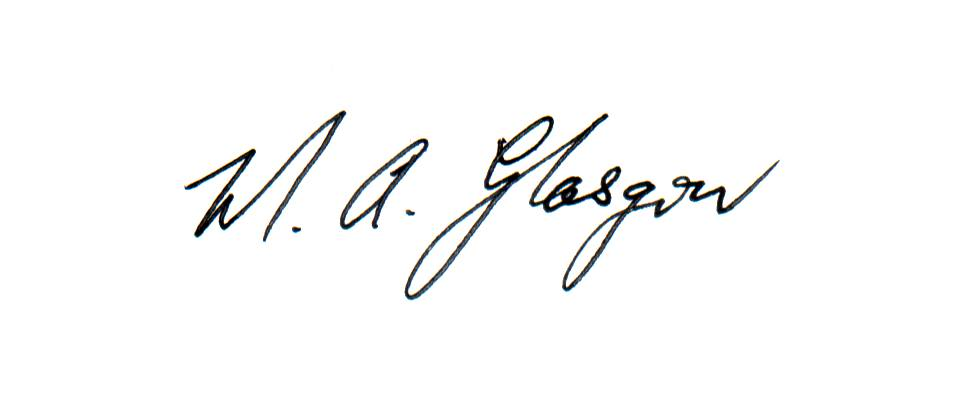 W. A. Glasgow